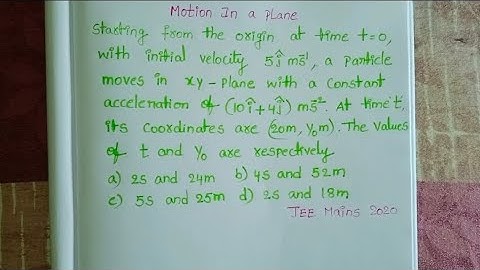 Motion In a plane
Starting from the origin at time t=0,
with initial velocity 5ĵ ms⁻¹, a particle
moves in xy-plane with a constant
acceleration of (10î+4ĵ) ms⁻². At time 't',
its coordinates are (20m, y₀m). The values
of t and y₀ are respectively
a) 2s and 24m b) 4s and 52m
c) 5s and 25m d) 2s and 18m
JEE Mains 2020